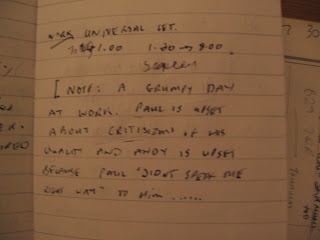 WORK UNIVERSAL LET.
1.00 1.30 → 9.00
[NOTE: A GRUMPY DAY
AT WORK. PAUL IS UPSET
ABOUT CRITISISM OF HIS
QUALITY AND ANDY IS UPSET
BECAUSE PAUL "DIDNT SPEAK THE
RIGHT WAY" TO HIM .....